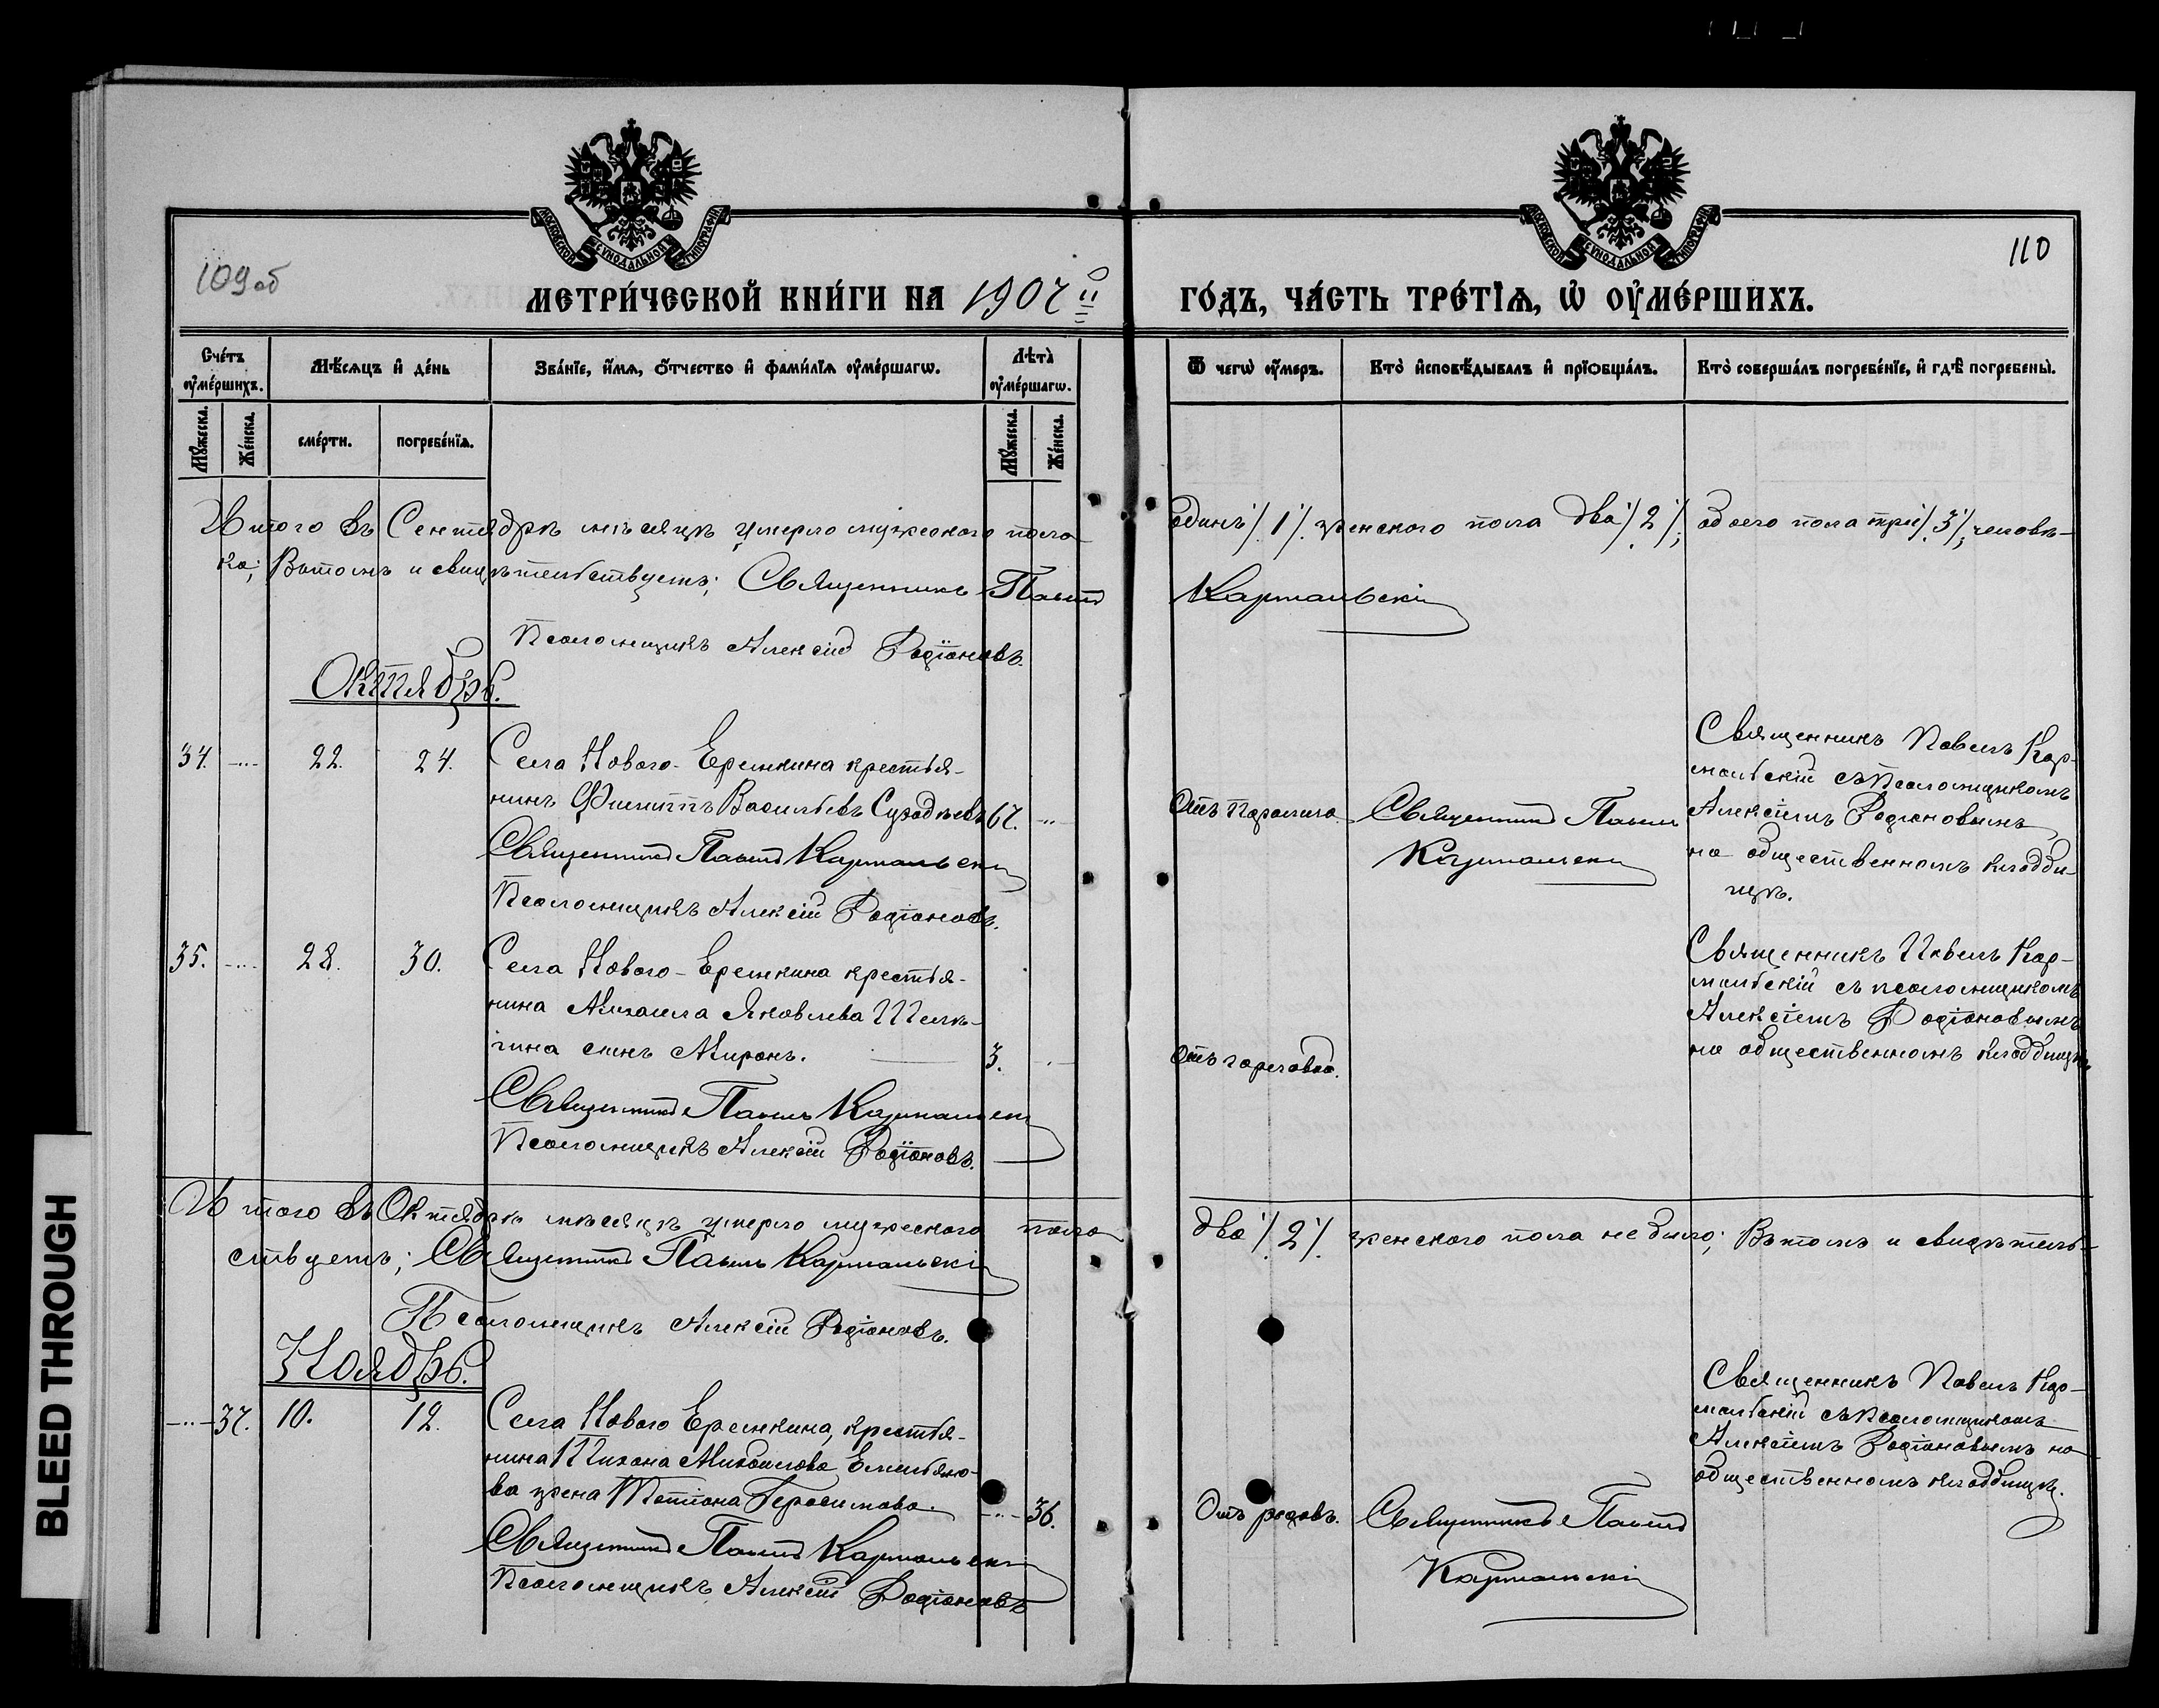 109об
110
МОСКОВСКОЙ СѴНОДАЛЬНОЙ ТИПОГРАФІИ
МОСКОВСКОЙ СѴНОДАЛЬНОЙ ТИПОГРАФІИ
МЕТРИ́ЧЕСКОЙ КНИ́ГИ НА 1907й ГО́ДЪ, ЧА́СТЬ ТРЕ́ТІѦ, Ѡ҆ ОУ҆МЕ́РШИХЪ.
Сче́тъ оу҆ме́ршихъ.
Мѣ́сѧцъ и҆ де́нь
Зва́нїе, и҆́мѧ, ѻ҆́тчество и҆ фами́лїѧ оу҆ме́ршагѡ.
Лѣ̀та оу҆ме́ршагѡ.
Ѿ чегѡ̀ оу҆́меръ.
Кто̀ и҆сповѣ́дывалъ и҆ прїѡбща́лъ.
Кто̀ соверша́лъ погребе́нїе, и҆ гдѣ̀ погребены̀.
Мꙋ́жеска.
Же́нска.
сме́рти.
погребе́нїѧ.
Мꙋ́жеска.
Же́нска.
Итого въ Сентябрѣ мѣсяцѣ умерло мужеского пола одинъ /1/. женского пола два /2/, обоего пола три /3/; человѣ-
ка; Вътомъ и свидѣтельствуетъ; Священникъ Павелъ Кармальскій
Псаломщикъ Алексій Родіоновъ.
Октябрь.
34. -..- 22. 24. Села Нового-Еремкина крестья-
нинъ Филиппъ Васильевъ Суходѣевъ 67. -..-
Священникъ Павелъ Кармальскій
Псаломщикъ Алексій Родіоновъ.
Отъ Паралича.
Священникъ Павелъ
Кармальскій
Священникъ Павелъ Кар-
мальскій съ Псаломщикомъ
Алексіемъ Родіоновымъ
на общественномъ кладби-
щѣ.
35. -..- 28. 30. Села Нового-Еремкина крестья-
нина Михаила Яковлева Шелѣ-
гина сынъ Миронъ. 3. -..-
Священникъ Павелъ Кармальскій
Псаломщикъ Алексій Родіоновъ.
Отъ горячки.
Священникъ Павелъ Кар-
мальскій съ псаломщикомъ
Алексіемъ Родіоновымъ
на общественномъ кладбищѣ.
Итого въ Октябрѣ мѣсяцѣ умерло мужеского пола два /2/. женского пола небыло; Вътомъ и свидѣтель-
ствуетъ; Священникъ Павелъ Кармальскій
Псаломщикъ Алексій Родіоновъ.
Ноябрь.
-..- 37. 10. 12. Села Нового Еремкина, крестья-
нина Тихона Михайлова Емельяно-
ва жена Татіана Герасимова. -..- 36.
Священникъ Павелъ Кармальскій
Псаломщикъ Алексій Родіоновъ
Отъ родовъ.
Священникъ Павелъ
Кармальскій
Священникъ Павелъ Кар-
мальскій съ Псаломщикомъ
Алексіемъ Родіоновымъ на
общественномъ кладбищѣ.
BLEED THROUGH